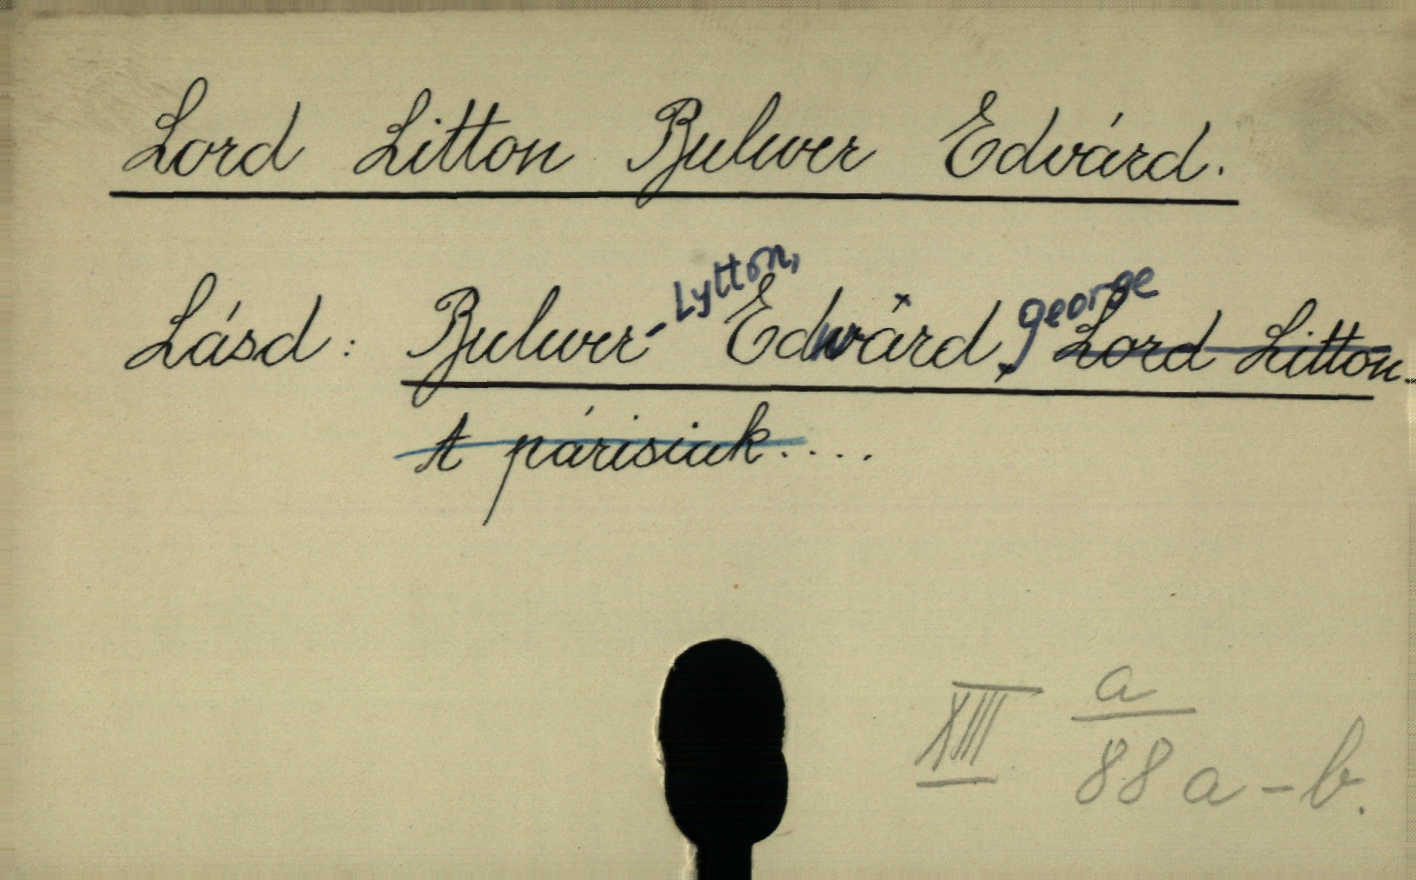 Lord Litton Bulwer Edvárd.
Lásd: Bulwer-Lytton, Edward, George Lord Litton.
A párisiak....
XIII a
88 a-b.